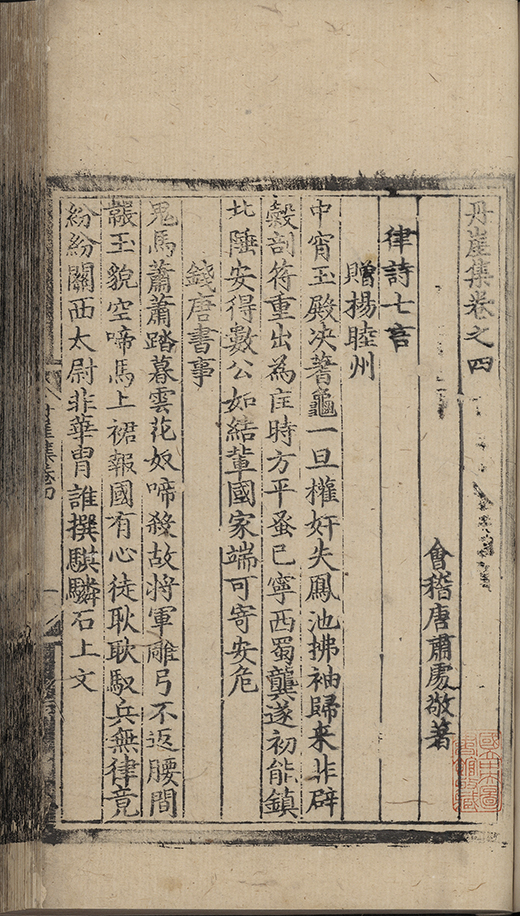 丹崖集卷之四
會稽唐肅處敬著
律詩七言
贈楊睦州
中宵玉殿決蓍龜一旦權奸失鳳池拂袖歸来非辟
糓剖符重出為庄時方平蚤已寧西蜀龔遂初能鎮
北陲安得數公如結輩國家端可寄安危
錢唐書事
鬼馬蕭蕭踏暮雲花奴啼殺故將軍雕弓不返腰間
韔玉貌空啼馬上裙報國有心徒耿耿馭兵無律竟
紛紛關西太尉非華胄誰撰騏驎石上文